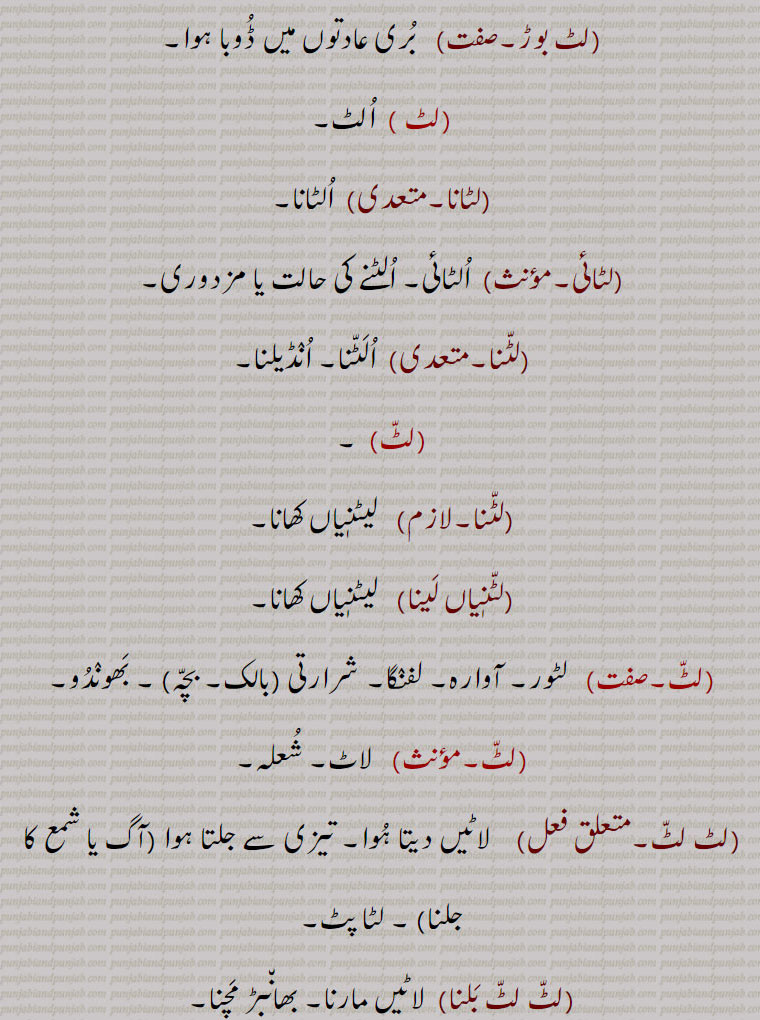 (لٹ بوڑ۔صفت) بُری عادتوں میں ڈُوبا ہوا۔
(لٹ ) اُلٹ۔
(لٹانا۔متعدی) اُلٹانا۔
(لٹائی۔مؤنث) اُلٹائی۔ اُلٹنے کی حالت یا مزدوری۔
(لٹّنا۔متعدی) اُلَٹّنا۔ اُنْڈیلنا۔
(لٹّ) ۔
(لٹّنا۔لازم) لیٹنیاں کھانا۔
(لٹّنیاں لَینا) لیٹنیاں کھانا۔
(لٹّ۔صفت) لٹور۔ آوارہ۔ لفنْگا۔ شرارتی (بالک۔ بچّہ) ۔ بَھونْدُو۔
(لٹّ۔مؤنث) لاٹ۔ شُعلہ۔
(لٹ لٹّ۔متعلق فعل) لاٹیں دیتا ہُوا۔ تیزی سے جلتا ہوا (آگ یا شمع کا
جلنا) ۔ لٹا پٹ۔
(لٹّ لٹّ بَلنا) لاٹیں مارنا۔ بھانْبڑ مَچنا۔